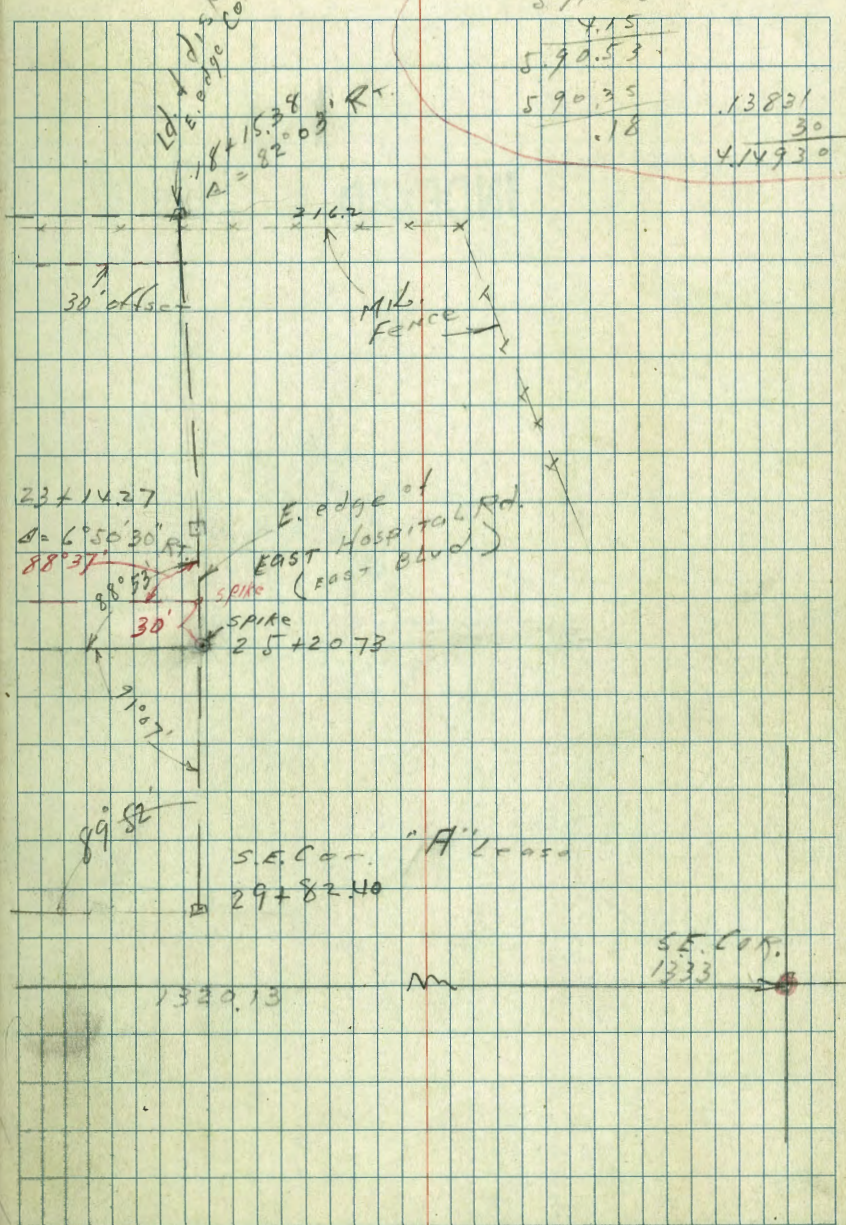 4.15
5 90.53
5 90.35
.18
.13831
30
4.14930
Ld. & dis
E. edge Co
18+15.38
Δ = 82°03' Rt.
216.2
30' offset
MIL.
Fence
23+14.27
Δ= 6°50'30" Rt.
88°37'
88°53'
30'
E. edge of
EAST Hospital Rd.
(EAST Blvd.)
spike
spike
25+20.73
91°07'
89°52'
S.E. Cor. "A" Lease
29+82.40
S.E. COR.
1333
1320.13